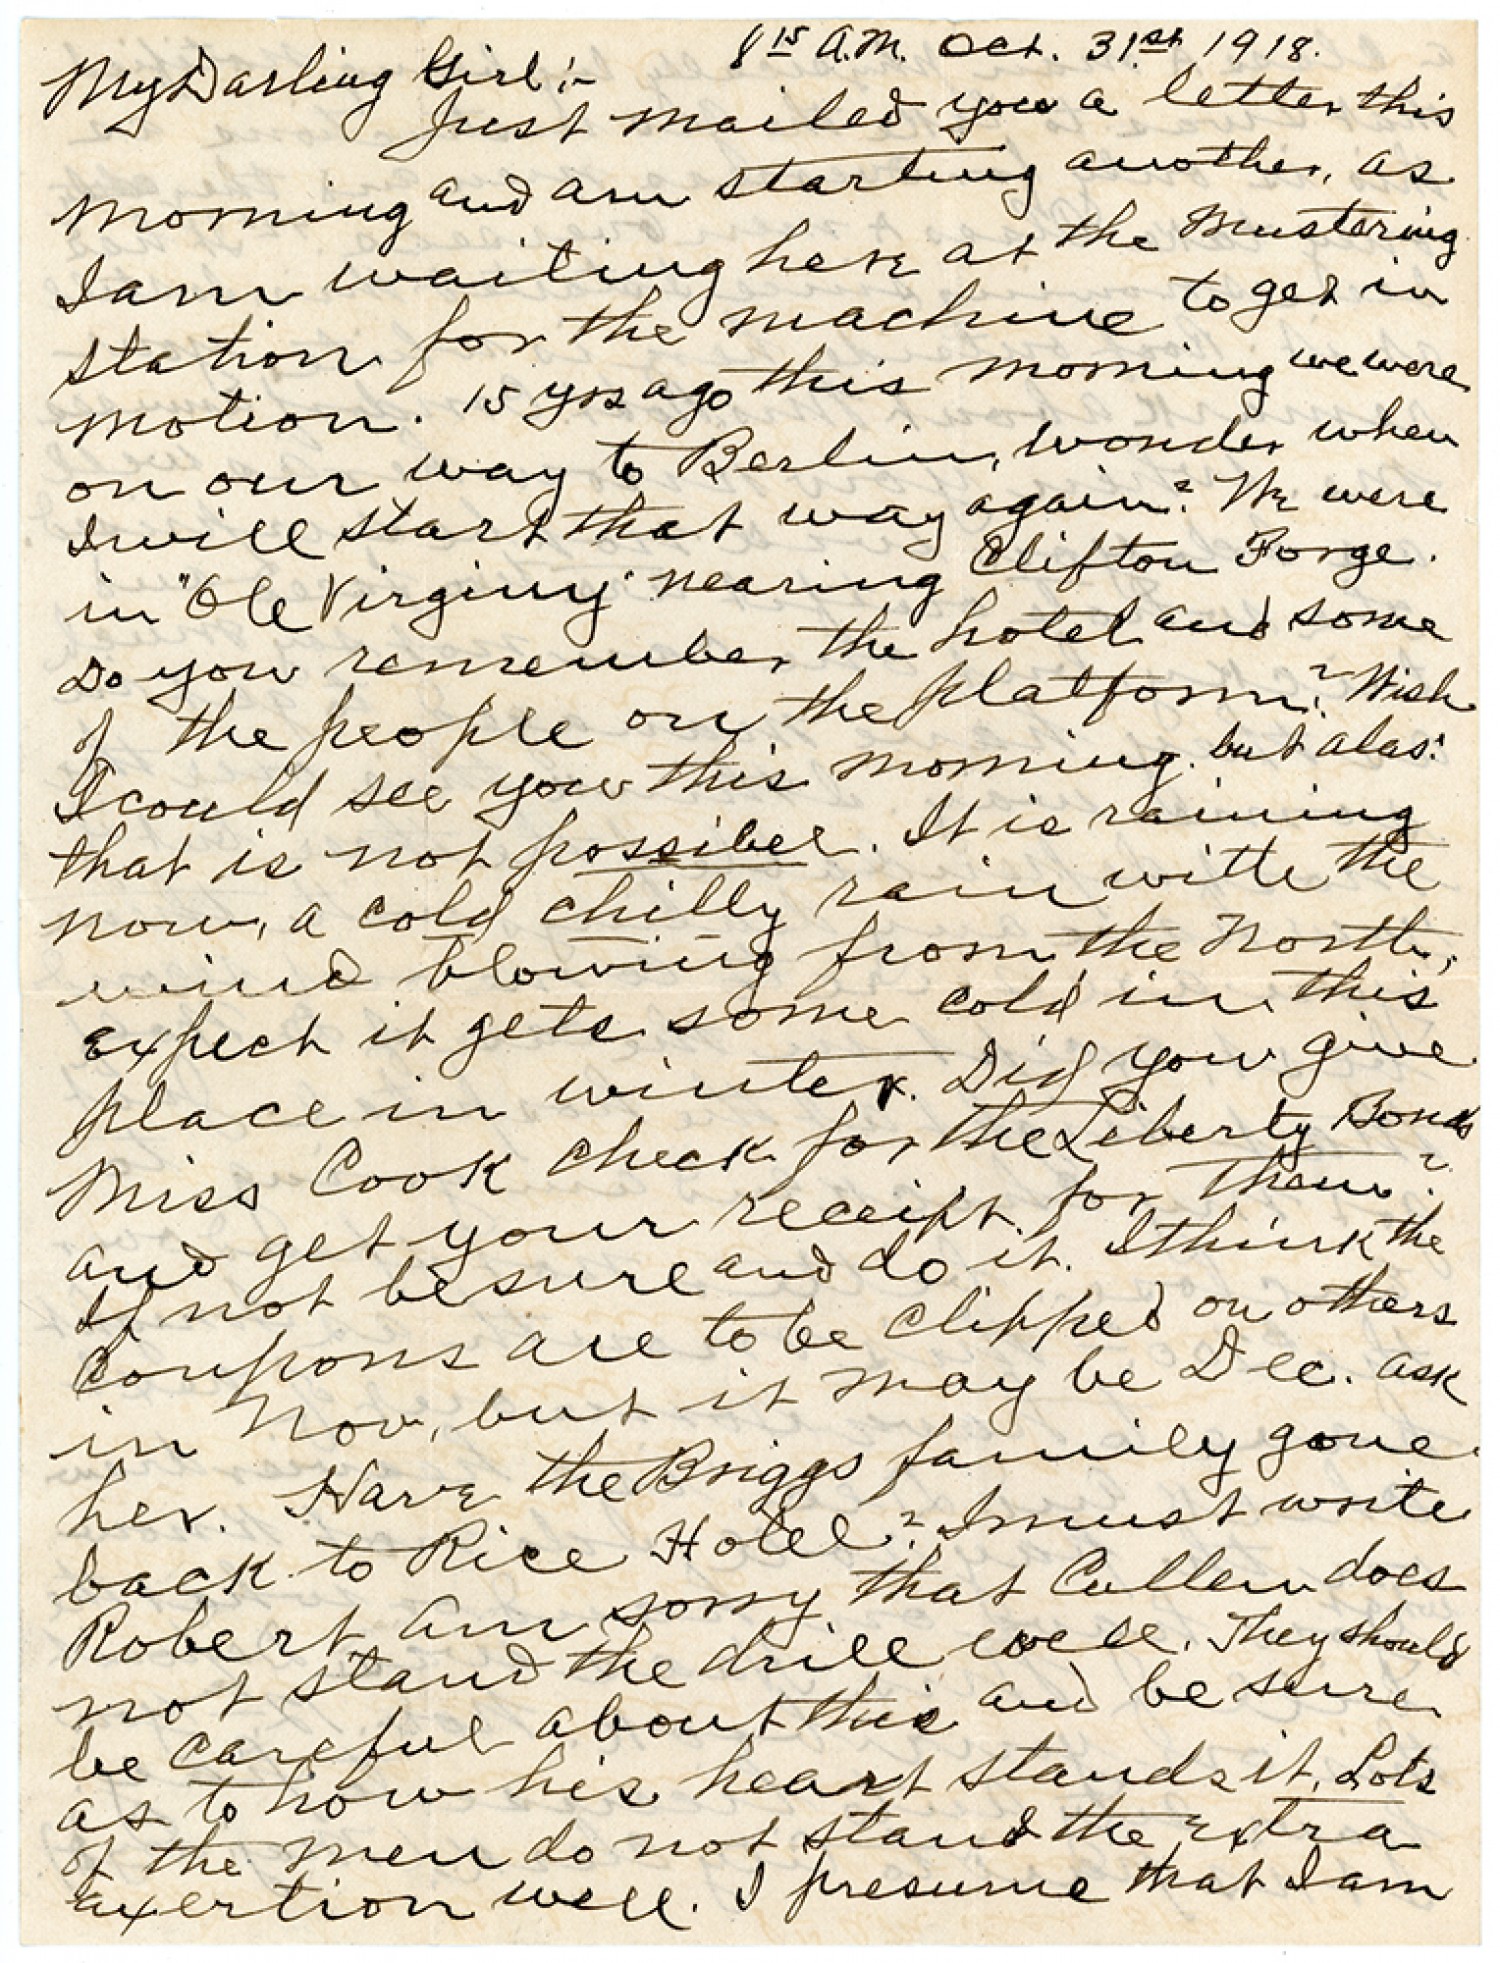 8 15 A.M. Oct. 31st 1918.
My Darling Girl:-
Just mailed you a letter this
morning and am starting another, as
I am waiting here at the Mustering
station for the machine to get in
motion. 15 yrs ago this morning we were
on our way to Berlin, wonder when
I will start that way again? We were
in "Ole Virginy" nearing Clifton Forge.
Do you remember the hotel and some
of the people on the platform? Wish
I could see you this morning. but alas!
that is not possibel. It is raining
now, a cold chilly rain with the
wind blowing from the North,
expect it gets some cold in this
place in winter. Did you give
Miss Cook check for the Liberty Bonds
and get your receipt for them?
If not be sure and do it. I think the
Coupons are to be clipped on others
in Nov, but it may be Dec. ask
her. Have the Briggs family gone
back to Rice Hotel? I must write
Robert am sorry that Cullen does
not stand the drill well. They should
be careful about this and be sure
as to how his heart stands it. Lots
of the men do not stand the extra
exertion well. I presume that I am